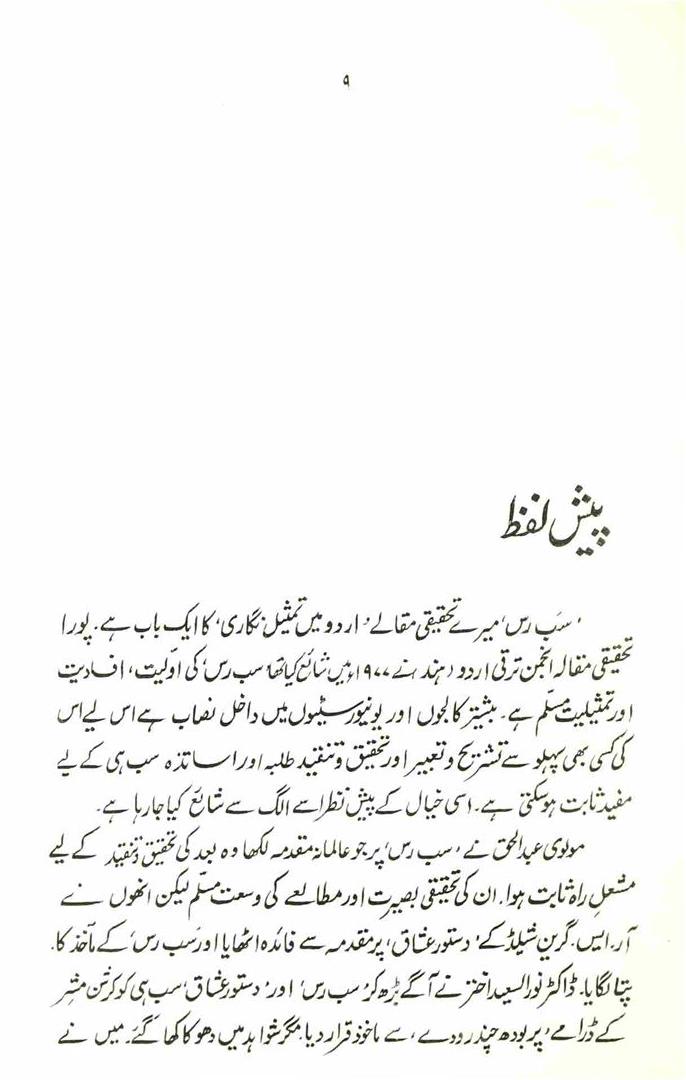 ۹
پیش لفظ
’سَب رس‘ میرے تحقیقی مقالے ’اردو میں تمثیل نگاری‘ کا ایک باب ہے۔ پورا
تحقیقی مقالہ انجمن ترقی اردو (ہند) نے ۱۹۷۷ء میں شائع کیا تھا ’سب رس‘ کی اوّلیت، افادیت
اور تمثیلیت مسلّم ہے۔ بیشتر کالجوں اور یونیورسٹیوں میں داخل نصاب ہے اس لیے اس
کی کسی بھی پہلو سے تشریح و تعبیر اور تحقیق و تنقید طلبہ اور اساتذہ سب ہی کے لیے
مفید ثابت ہو سکتی ہے۔ اسی خیال کے پیش نظر اسے الگ سے شائع کیا جارہا ہے۔
مولوی عبدالحق نے ’سب رس‘ پر جو عالمانہ مقدمہ لکھا وہ بعد کی تحقیق و تنقید کے لیے
مشعلِ راہ ثابت ہوا۔ ان کی تحقیقی بصیرت اور مطالعے کی وسعت مسلّم لیکن انھوں نے
آر۔ ایس۔ گرین شیلڈ کے ’دستور عشاق‘ پر مقدمہ سے فائدہ اٹھایا اور ’سَب رس‘ کے مآخذ کا
پتا لگایا۔ ڈاکٹر نورالسعید اختر نے آگے بڑھ کر ’سب رس‘ اور ’دستور عشاق‘ سب ہی کو کرشن مشر
کے ڈرامے ’پربودھ چندرودے‘ سے ماخوذ قرار دیا۔ مگر شواہد میں دھوکا کھا گئے۔ میں نے